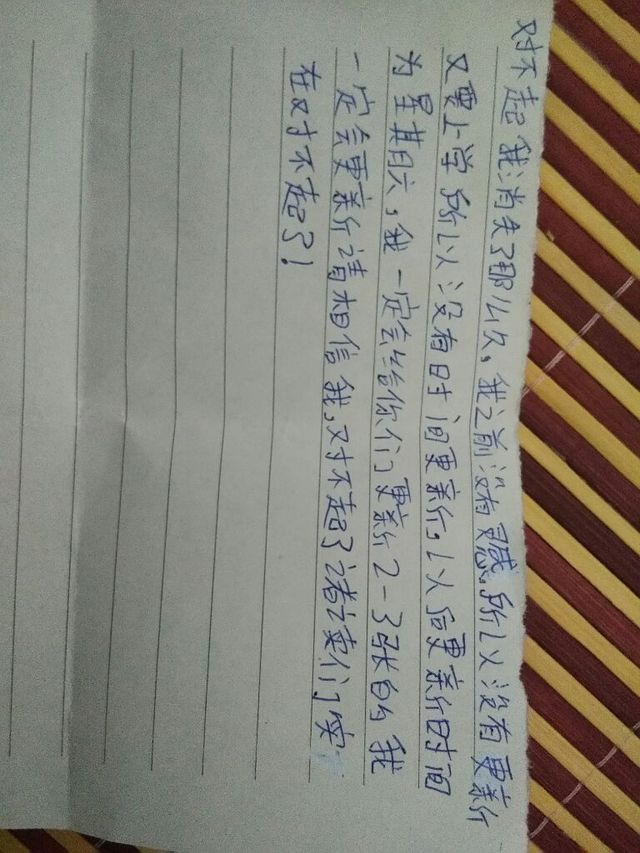 对不起我消失了那么久，我之前没有灵感，所以没有更新
又要上学所以没有时间更新，以后更新时间
为星期六，我一定会给你们更新2-3张的我
一定会更新请相信我，对不起了诸读们实
在对不起了！